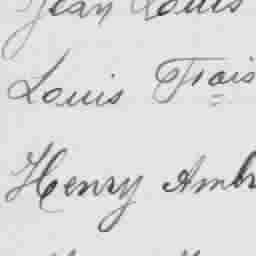 Jean Louis
Louis Frais
Henry Ambr